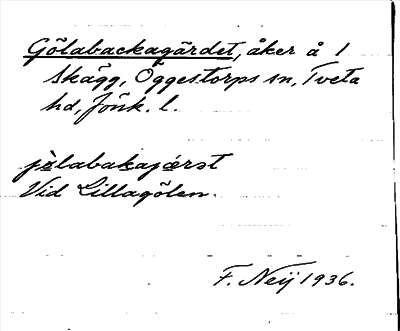 Gölabackagärdet, åker å 1
Skägg, Öggestorps sn, Tveta
hd, Jönk. l.
jɵ̀labakajærət
Vid Lillagölen.
F. Neij 1936.